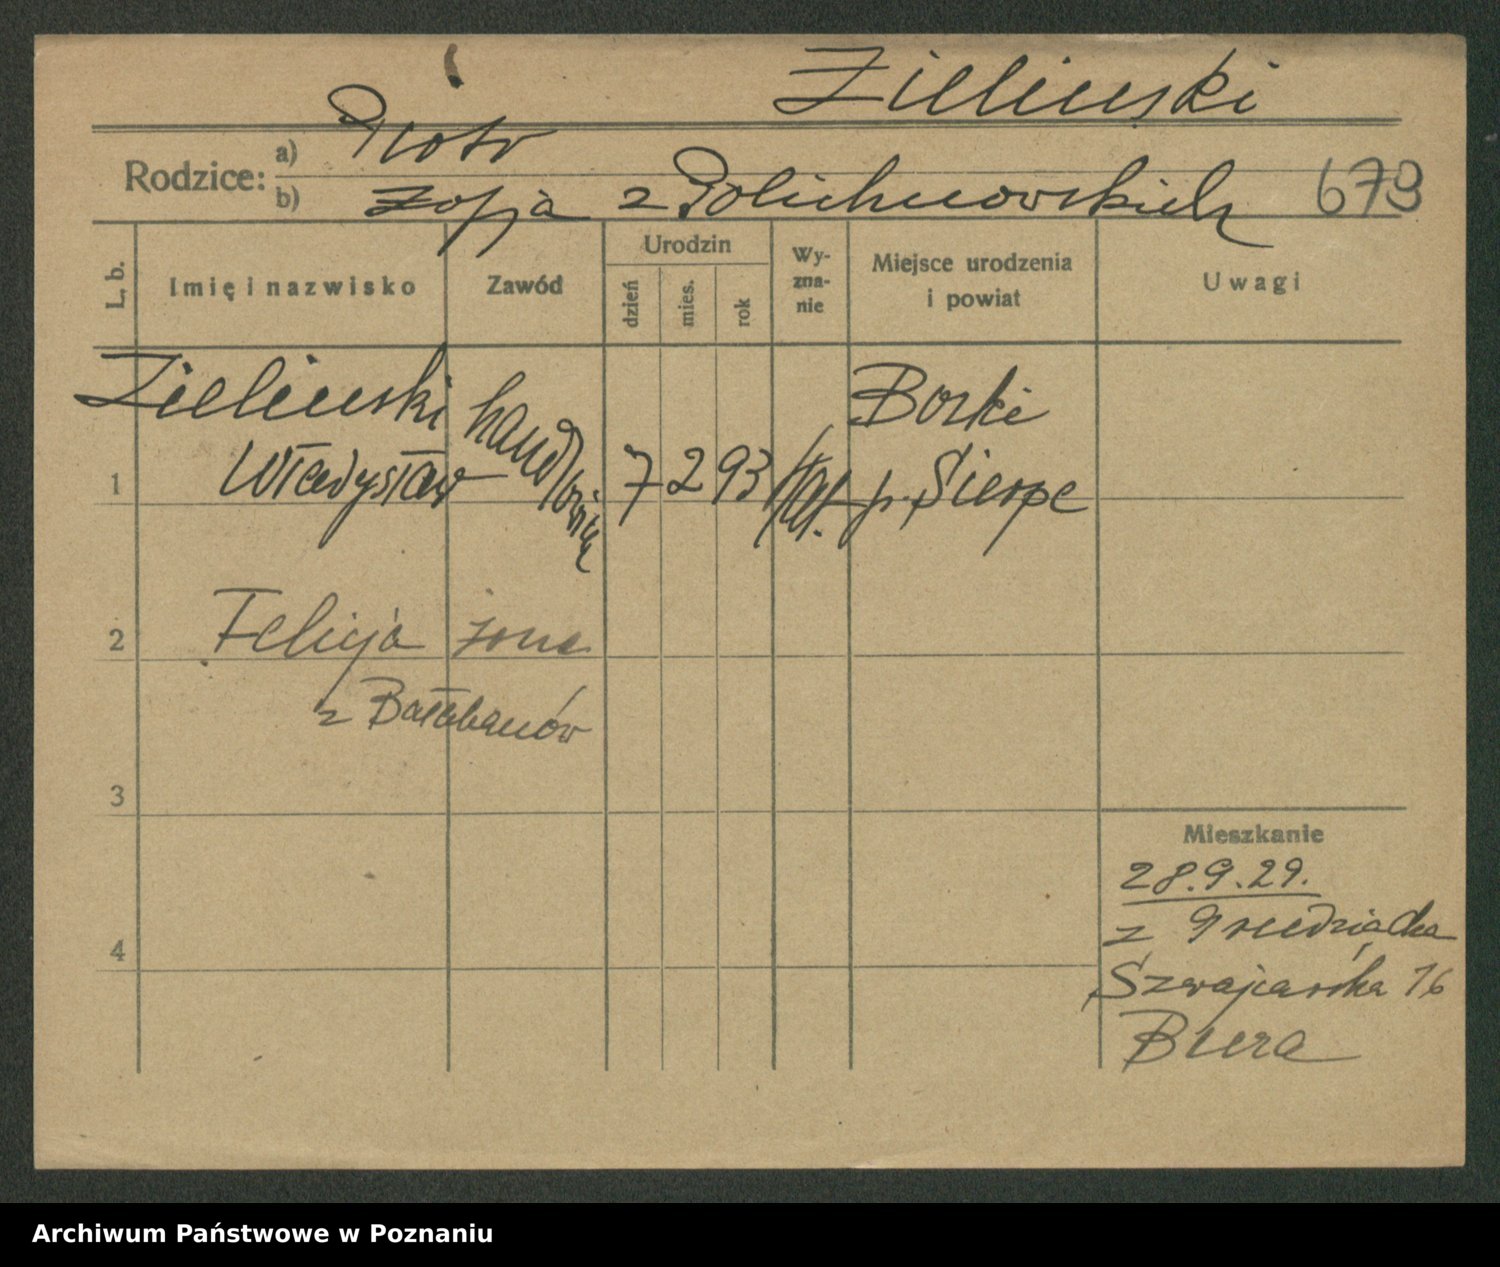 Zieliński
Rodzice: a) Piotr
b) Zofja z Polichnowskich 679
L. b. Imię i nazwisko Zawód Urodzin dzień mies. rok Wy-zna-nie Miejsce urodzenia i powiat Uwagi
1 Zieliński Władysław 7 2 93 Borki p. Sierpc
2 Felicja żona
z Bałabanów
3
4
Mieszkanie
28.9.29.
z Grudziądza
Szwajcarska 16
Archiwum Państwowe w Poznaniu